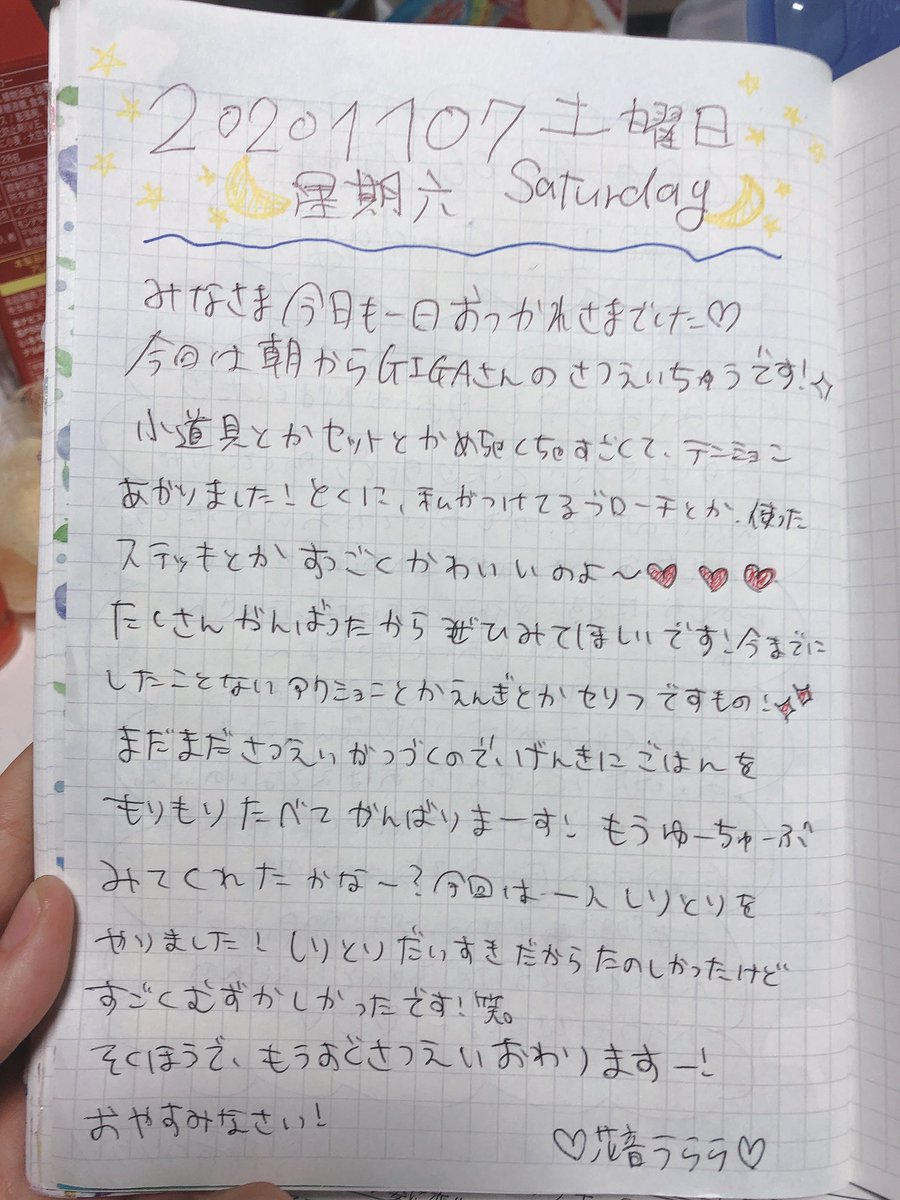 20201107 土曜日
星期六 Saturday
みなさま今日も一日おつかれさまでした♡
今回は朝からGIGAさんのさつえいちゅうです!☆
小道具とかセットとかめちゃくちゃすごくて、テンション
あがりました!とくに、私がつけてるブローチとか、使った
ステッキとかすっごくかわいいのよ〜♥ ♥ ♥
たくさんがんばったからぜひみてほしいです!今までに
したことないアクションとかえんぎとかセリフですもの!
まだまださつえいがつづくので、げんきにごはんを
もりもりたべてがんばりまーす! もうゆーちゅーぶ
みてくれたかなー?今回は一人しりとりを
やりました! しりとりだいすきだからたのしかったけど
すごくむずかしかったです!笑。
そくほうで、もうおどさつえいおわりますー!
おやすみなさい!
♡花音うらら♡